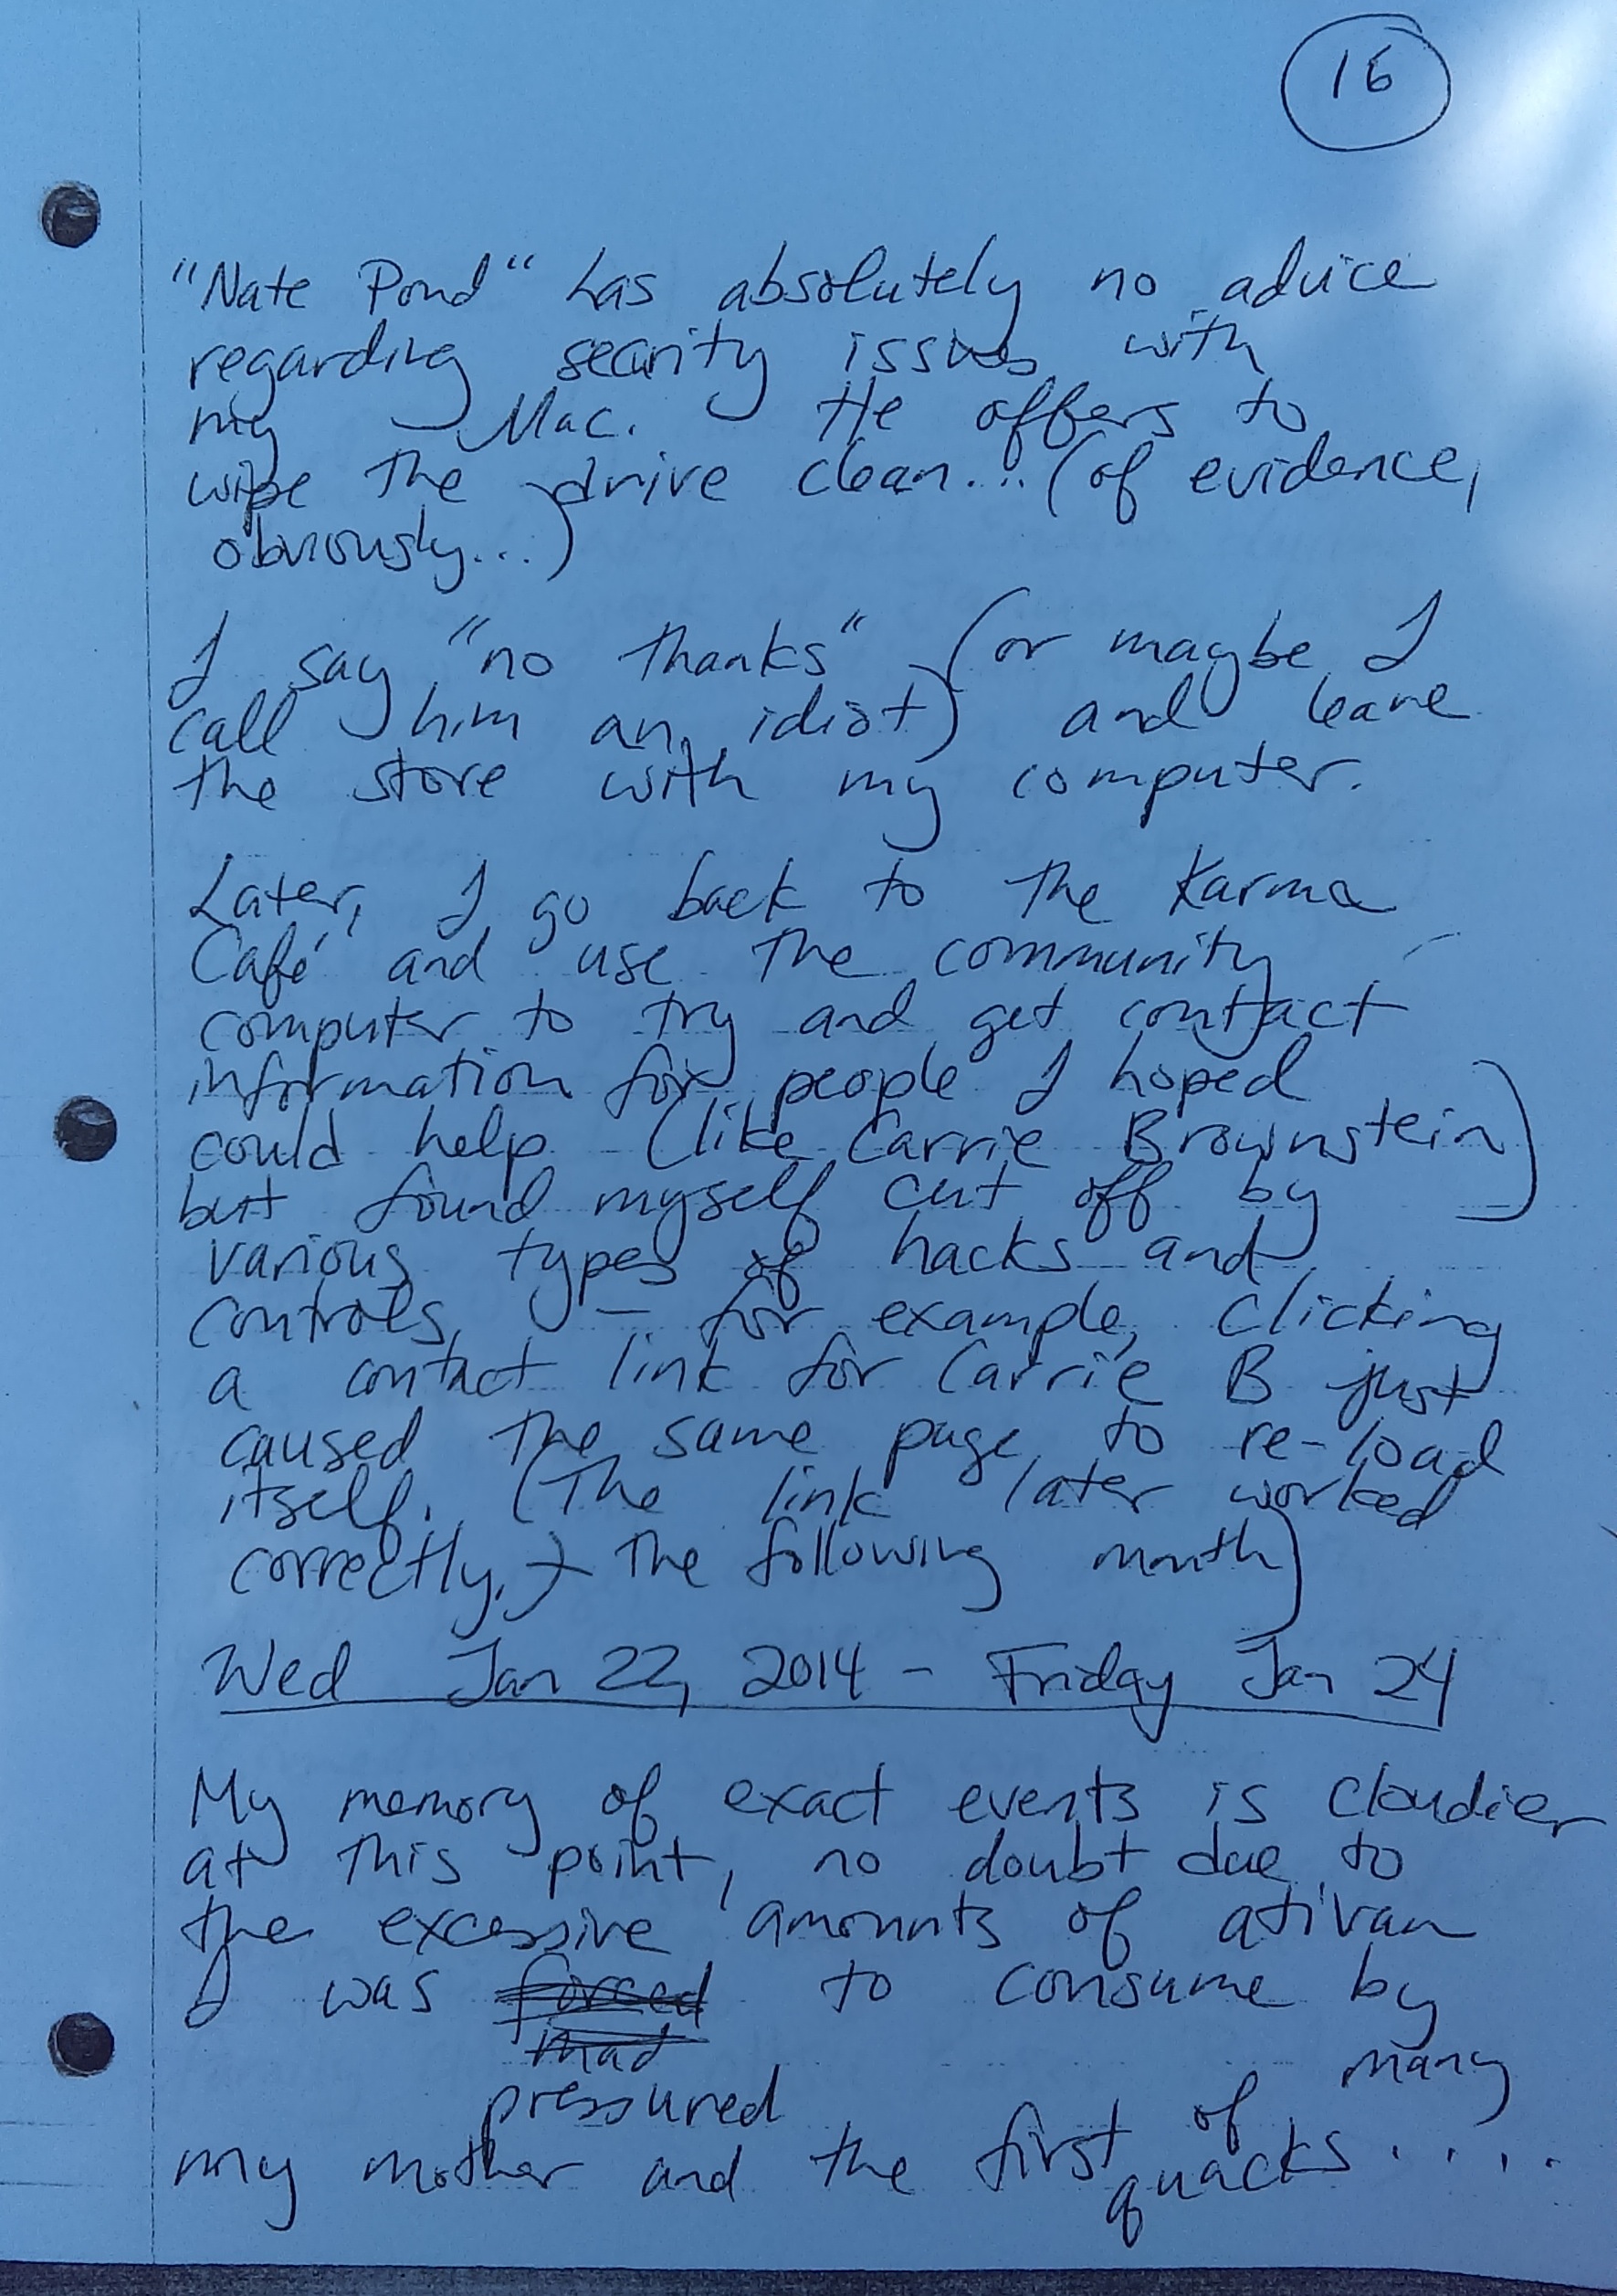 16
"Nate Pond" has absolutely no advice
regarding security issues with
my Mac. He offers to
wipe the drive clean... (of evidence,
obviously...)
I say "no thanks" (or maybe I
call him an idiot) and leave
the store with my computer.
Later, I go back to the Karma
Café and use the community
computer to try and get contact
information for people I hoped
could help (like Carrie Brownstein)
but found myself cut off by
various types of hacks and
controls, — for example, clicking
a contact link for Carrie B just
caused the same page to re-load
itself. (The link later worked
correctly.) the following month)
Wed Jan 22, 2014 - Friday Jan 24
My memory of exact events is cloudier
at this point, no doubt due to
the excessive amounts of ativan
I was forced to consume by
mad
pressured
my mother and the first of many
quacks.....